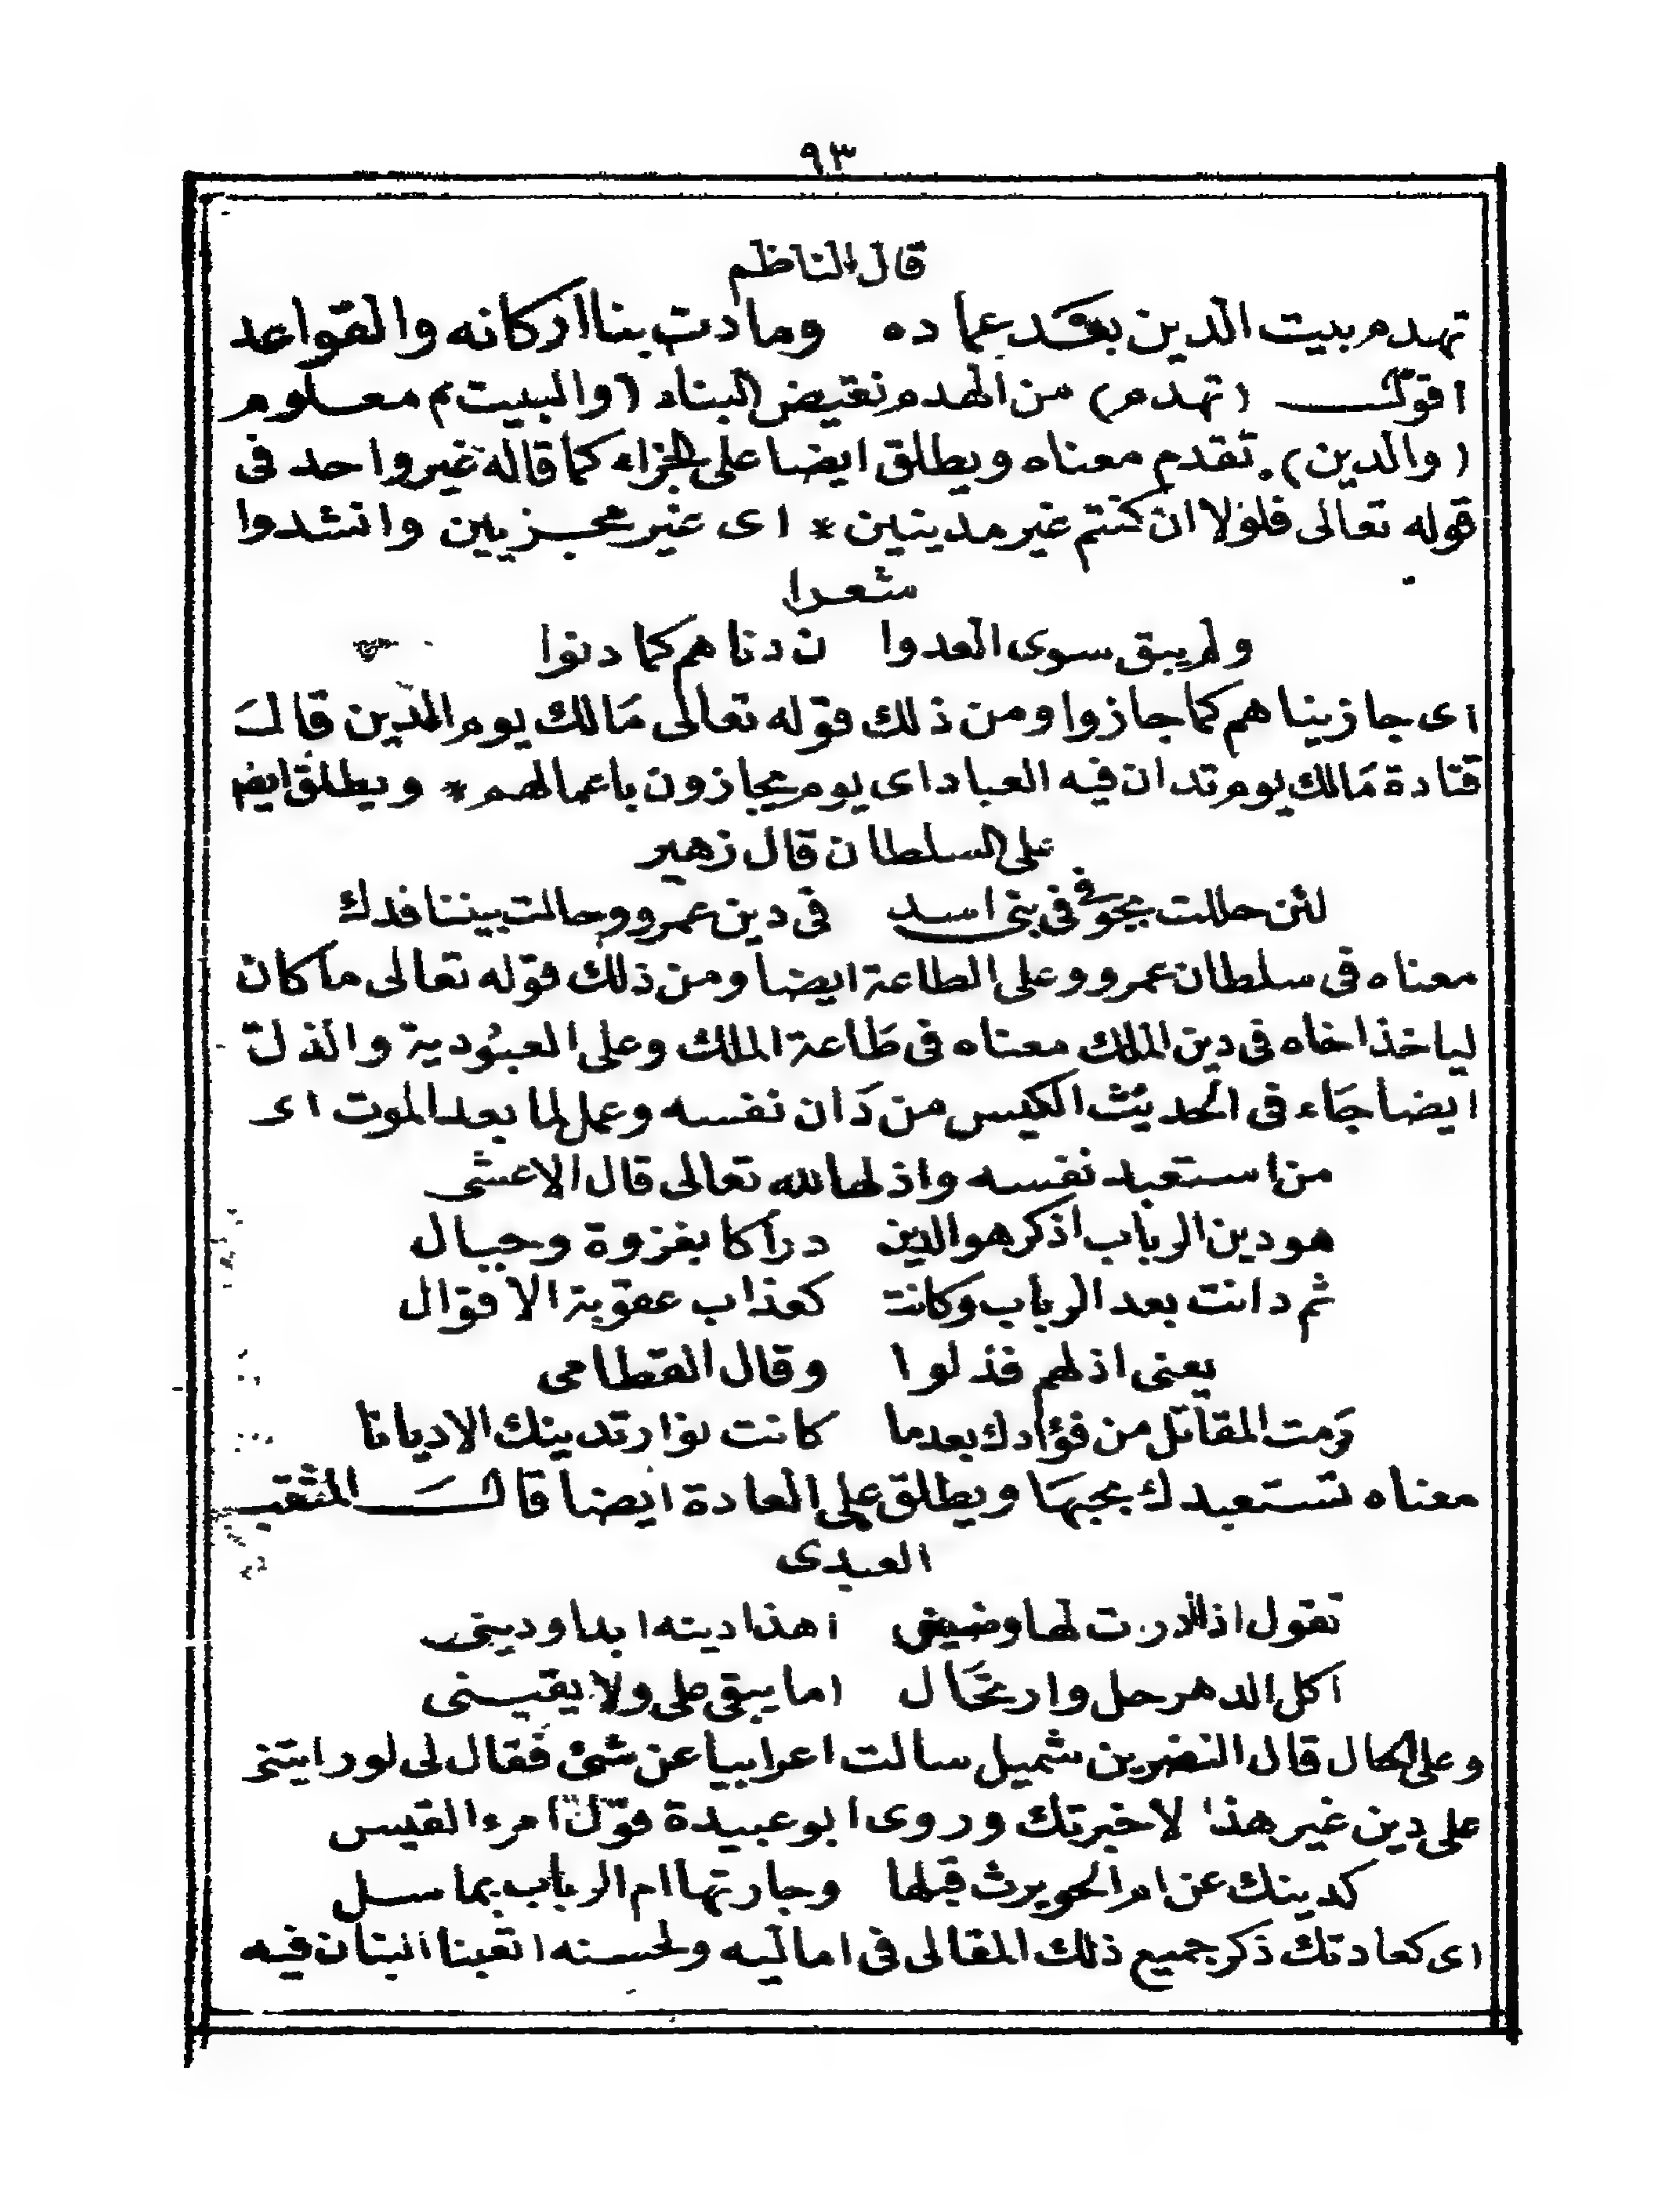 ٩٣
قال الناظم
تهدم بيت الدين بعقد عماده ومادت بنا اركانه والقواعد
اقول (تهدم) من الهدم نقيض البناء (والبيت) معلوم
(والدين) تقدم معناه ويطلق ايضا على الجزاء كما قاله غير واحد فى
قوله تعالى فلولا ان كنتم غير مدينين * اى غير مجزيين وانشدوا
شعرا
ولم يبق سوى العدوا ن دناهم كما دنوا
اى جازيناهم كما جازوا ومن ذلك قوله تعالى مالك يوم الدين قال
قتادة مالك يوم تدان فيه العباد اى يوم يجازون باعمالهم * ويطلق ايض
على السلطان قال زهير
لئن حللت بجو فى بنى اسد فى دين عمرو وحالت بيننا فدك
معناه فى سلطان عمرو وعلى الطاعة ايضا ومن ذلك قوله تعالى ما كان
لياخذ اخاه فى دين الملك معناه فى طاعة الملك وعلى العبودية والذل
ايضا جاء فى الحديث الكيس من دان نفسه وعمل لما بعد الموت اى
من استعبد نفسه واذلها لله تعالى قال الاعشى
هو دين الرباب اذكر هو الدين دراكا بغزوة وحيال
ثم دانت بعد الرباب وكانت كعذاب عقوبة الاقوال
يعنى اذلهم فذلوا وقال القطامى
رمت المقاتل من فؤادك بعدما كانت نوار تدينك الاديانا
معناه تستعبدك بحبها ويطلق على العادة ايضا قال المثقب
العبدى
تقول اذا درت لها وضينى اهذا دينه ابدا ودينى
اكل الدهر حل وارتحال اما يبقى على ولا يقينى
وعلى الحال قال النضر بن شميل سالت اعرابيا عن شئ فقال لى لو رايتنى
على دين غير هذا لاخبرتك وروى ابو عبيدة قول امرء القيس
كدينك عن ام الحويرث قبلها وجارتها ام الرباب بماسل
اى كعادتك ذكر جميع ذلك المقالى فى اماليه ولحسنه اتعبنا البنان فيه